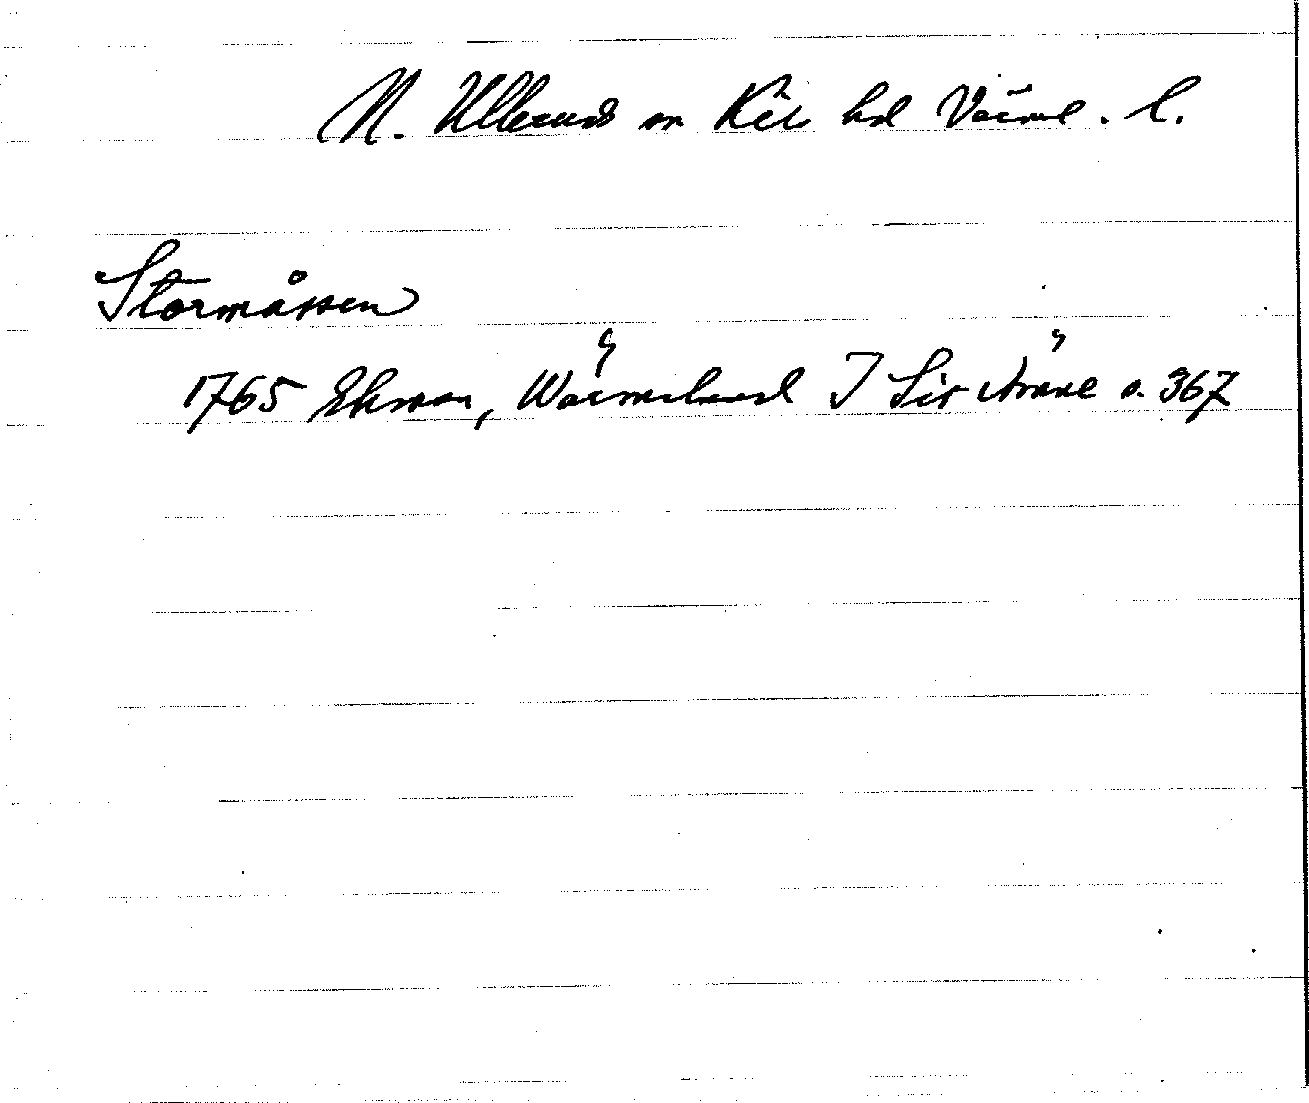 N. Ullerud sn Kil hd Värml. l.
Stormåssen
1765 Ekman, Wärmeland I Sit ämne s. 367